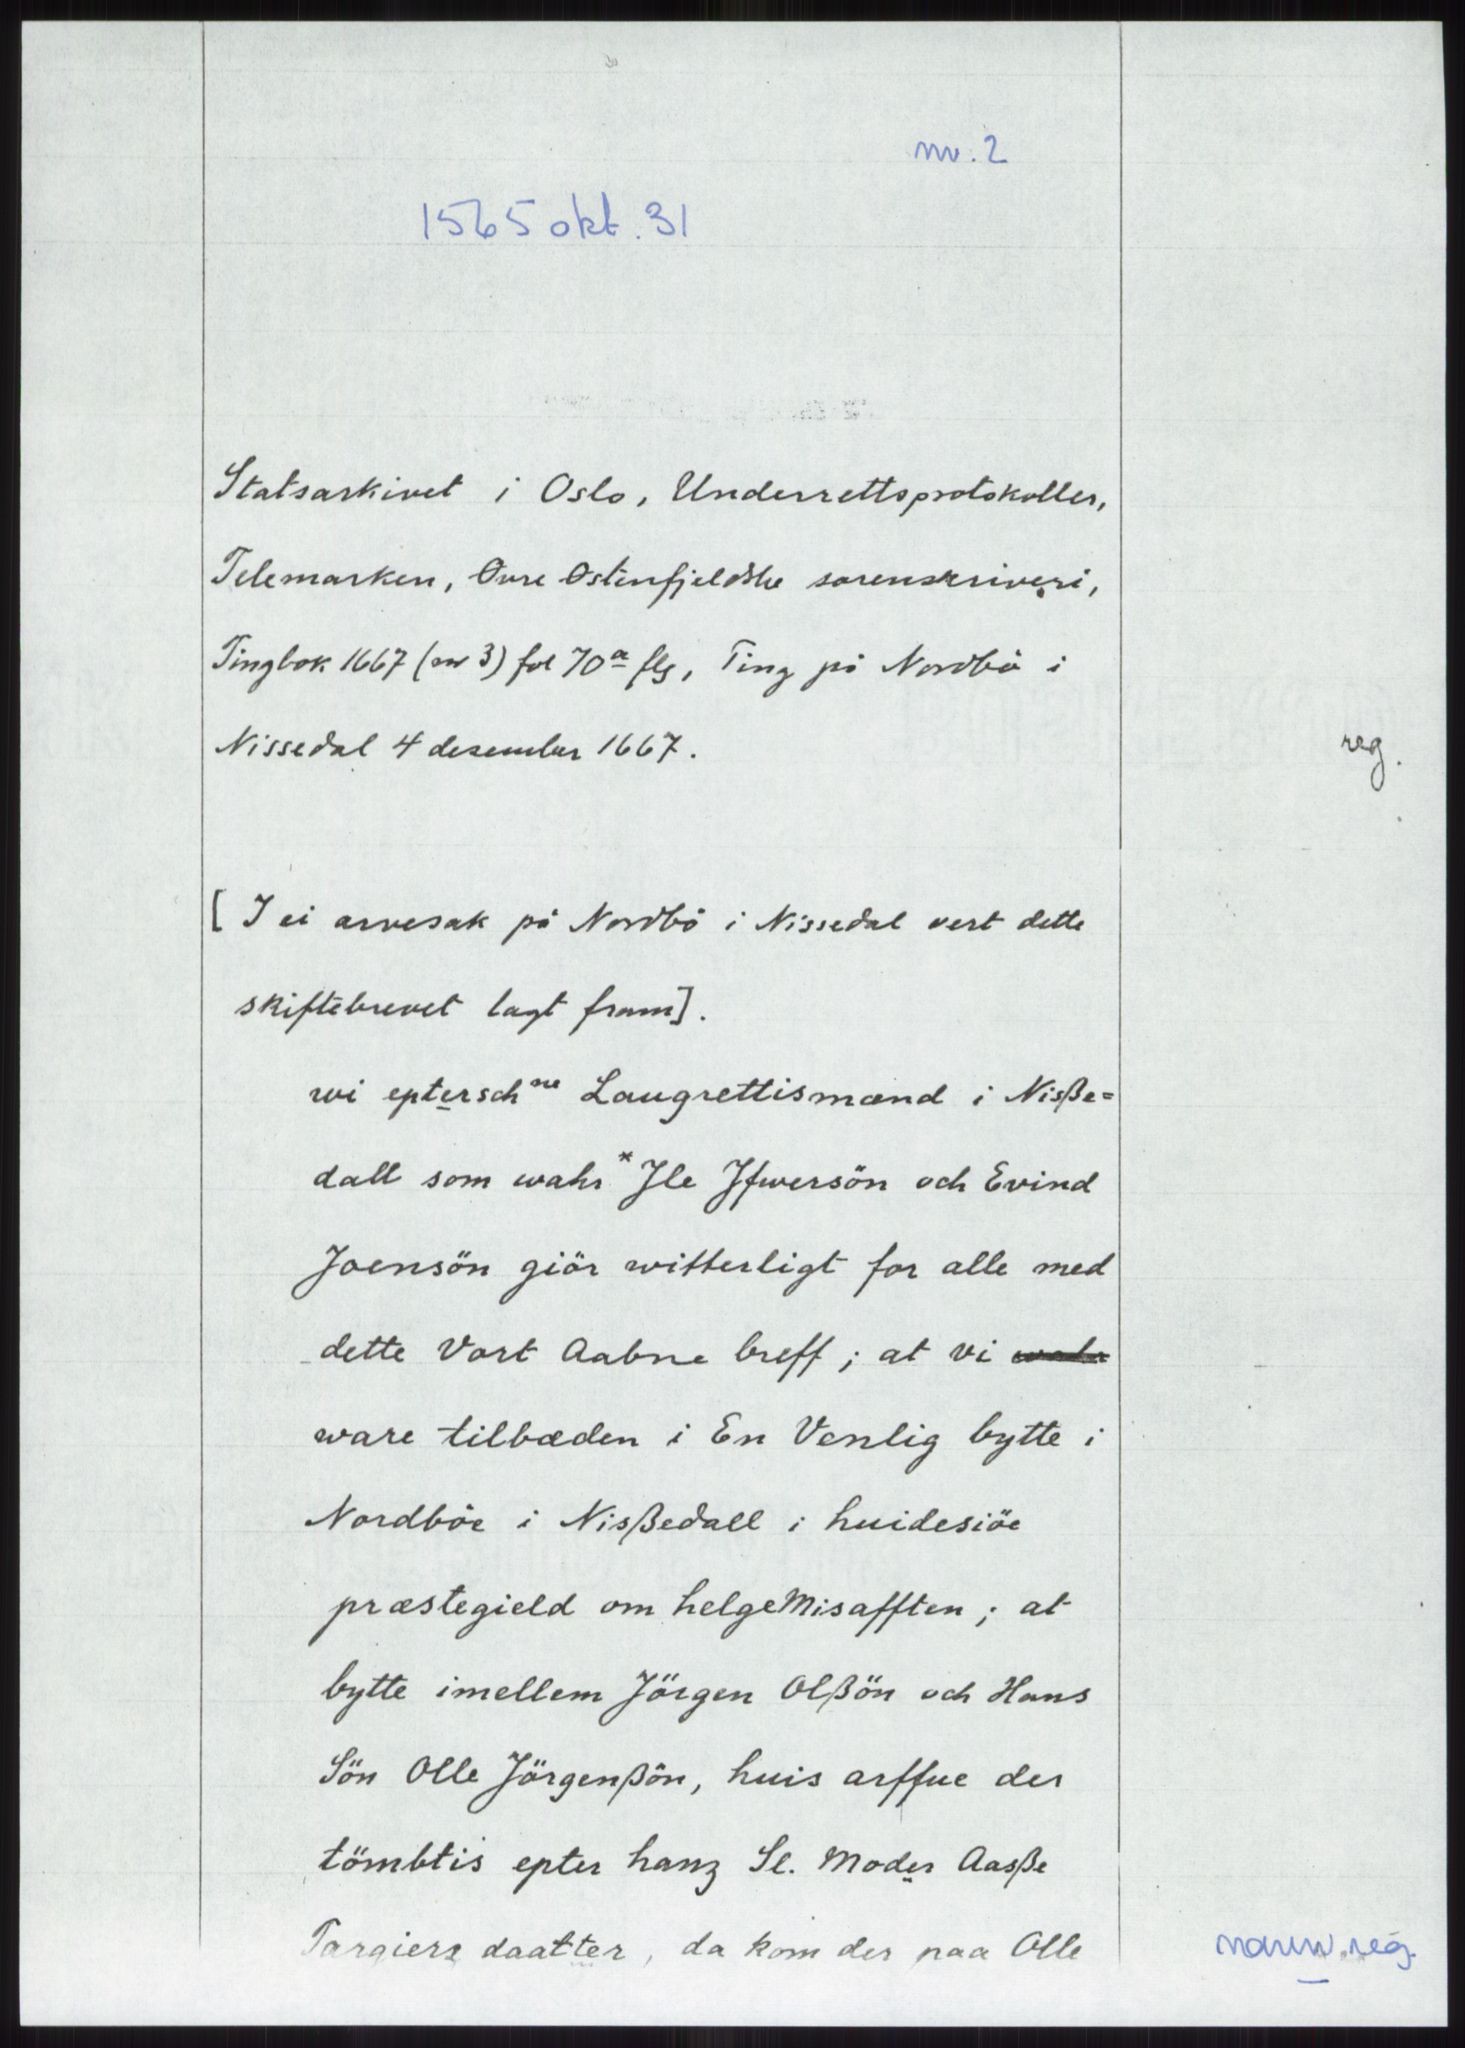 nr. 2
1565 okt. 31
Statsarkivet i Oslo, Underrettsprotokoller,
Telemarken, Øvre Østenfjeldske sorenskriveri,
Tingbok 1667 (nr 3) fol 70a flg, Ting på Nordbö i
Nissedal 4 desember 1667.
reg.
[ I ei arvesak på Nordbö i Nissedal vert dette
skiftebrevet lagt fram].
wi eptersch ne Laugrettismænd i Nisße=
dall som wahr *Jle Jfwersön och Evind
Joensön giör witterligt for alle med
dette Vort Aabne breff; at vi
ware tilbæden i En Venlig bytte i
Nordböe i Nisßedall i huidesiöe
præstegield om helgeMisafften; at
bytte imellem Jörgen Olßön och Hans
Sön Olle Jörgenßön, huis arffue der
tömbtis epter hanz Sl. Moder Aasße
Targiers daatter, da kom der paa Olle
navnreg.